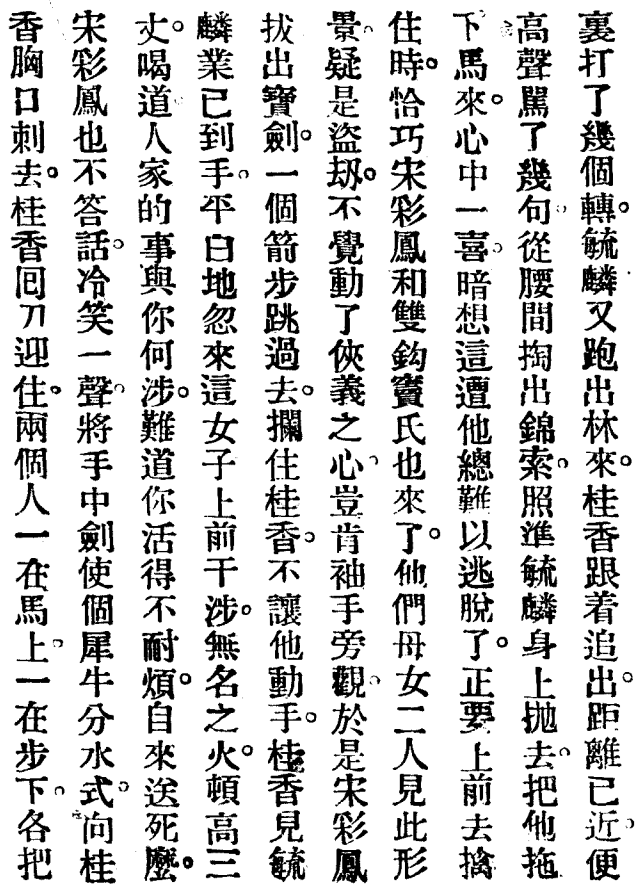 裏打了幾個轉。毓麟又跑出林來。桂香跟着追出。距離已近。便
高聲罵了幾句。從腰間掏出錦索。照準毓麟身上拋去。把他拖
下馬來。心中一喜。暗想這遭他總難以逃脫了。正要上前去擒
住時。恰巧宋彩鳳和雙鈎竇氏也來了。他們母女二人見此形
景。疑是盜刼。不覺動了俠義之心。豈肯袖手旁觀。於是宋彩鳳
拔出寶劍。一個箭步跳過去。攔住桂香。不讓他動手。桂香見毓
麟業已到手。平白地忽來這女子上前干涉。無名之火。頓高三
丈。喝道人家的事與你何涉。難道你活得不耐煩。自來送死麼。
宋彩鳳也不答話。冷笑一聲。將手中劍使個犀牛分水式。向桂
香胸口刺去。桂香囘刀迎住。兩個人一在馬上。一在步下。各把